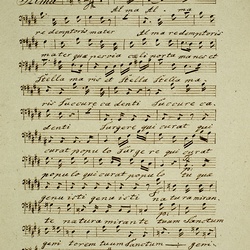 Alma Al ma
redemptoris mater Al ma redemptoris
mater qua pervia caeli porta manes et
Stella maris et Stella Stella ma
ris Succure ca denti Succure ca
denti Surgere qui curat qui
curat popu lo Surge re qui curat
populo qui curat populo tu quae
genu isti genu isti na tura miran
te natura mirante tuum Sanctum
geni torem tuum Sanctum geni